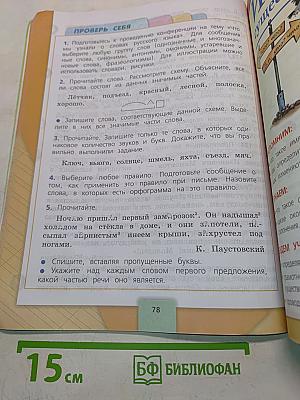 ПРОВЕРЬ СЕБЯ
1. Подготовьтесь к проведению конференции на тему «Что
мы узнали о словах русского языка». Для сообщения
выберите любую группу слов (однозначные и многознач-
ные слова, синонимы, антонимы, омонимы, устаревшие и
новые слова, фразеологизмы). Для иллюстрации можно
использовать словари, рисунки.
2. Прочитайте слова. Рассмотрите схему. Объясните, все
ли слова состоят из данных значимых частей.
Лётчик, подъезд, красный, лесной, полоска,
хорошо.
• Запишите слова, соответствующие данной схеме. Выде-
лите в них все значимые части слова.
3. Прочитайте. Запишите только те слова, в которых оди-
наковое количество звуков и букв. Докажите, что вы пра-
вильно выполнили задание.
Ключ, вьюга, солнце, шмель, яхта, съезд, мяч.
4. Выберите любое правило. Подготовьте сообщение о
том, как применять это правило при письме. Назовите
слова, в которых есть орфограмма на это правило.
5. Прочитайте.
первый
Он надышал
на стёкла в доме, и они
инеем крыши,
под
ногами.
К. Паустовский
• Спишите, вставляя пропущенные буквы.
• Укажите над каждым словом первого предложения,
какой частью речи оно является.
78
15 см
БФ БИБЛИОФАН